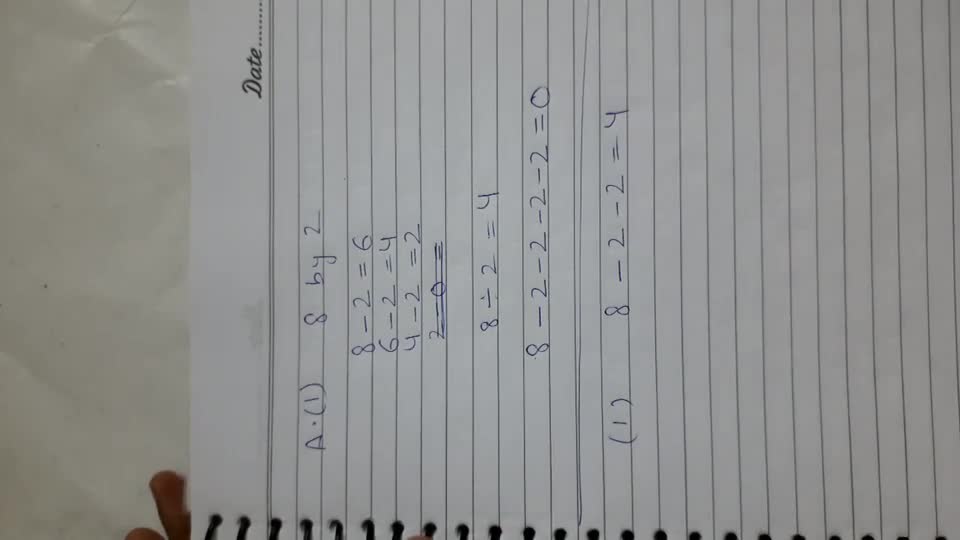 Date..........
A.(1) 8 by 2
8 - 2 = 6
6 - 2 = 4
4 - 2 = 2
2 - 0 =
8 ÷ 2 = 4
8 - 2 - 2 - 2 - 2 = 0
(1) 8 - 2 - 2 = 4